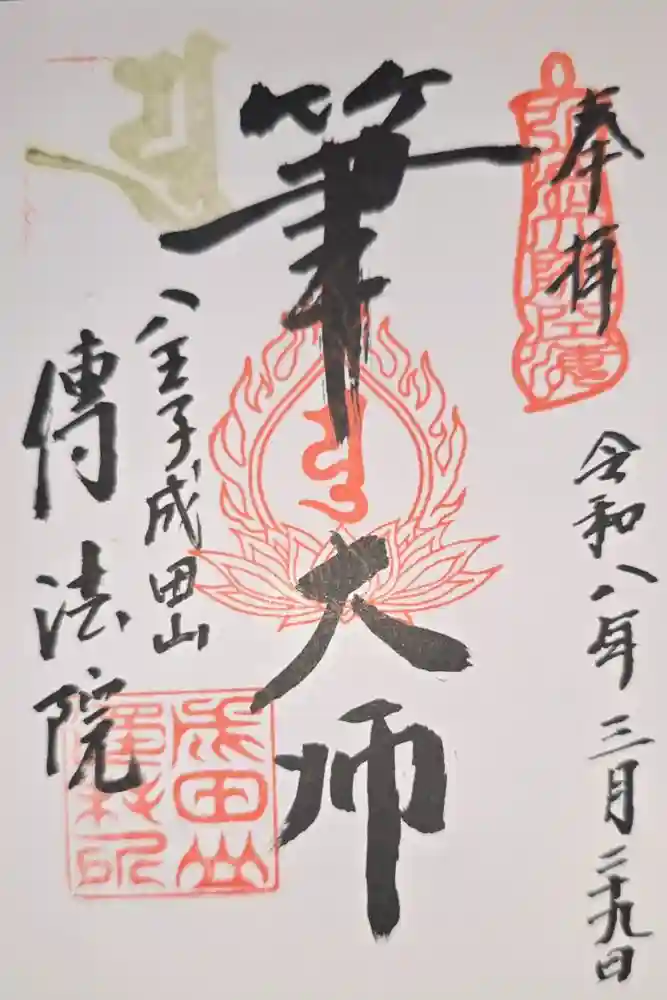 奉拝
令和八年三月二十九日
筆大師
八王子成田山
傳法院
成田山